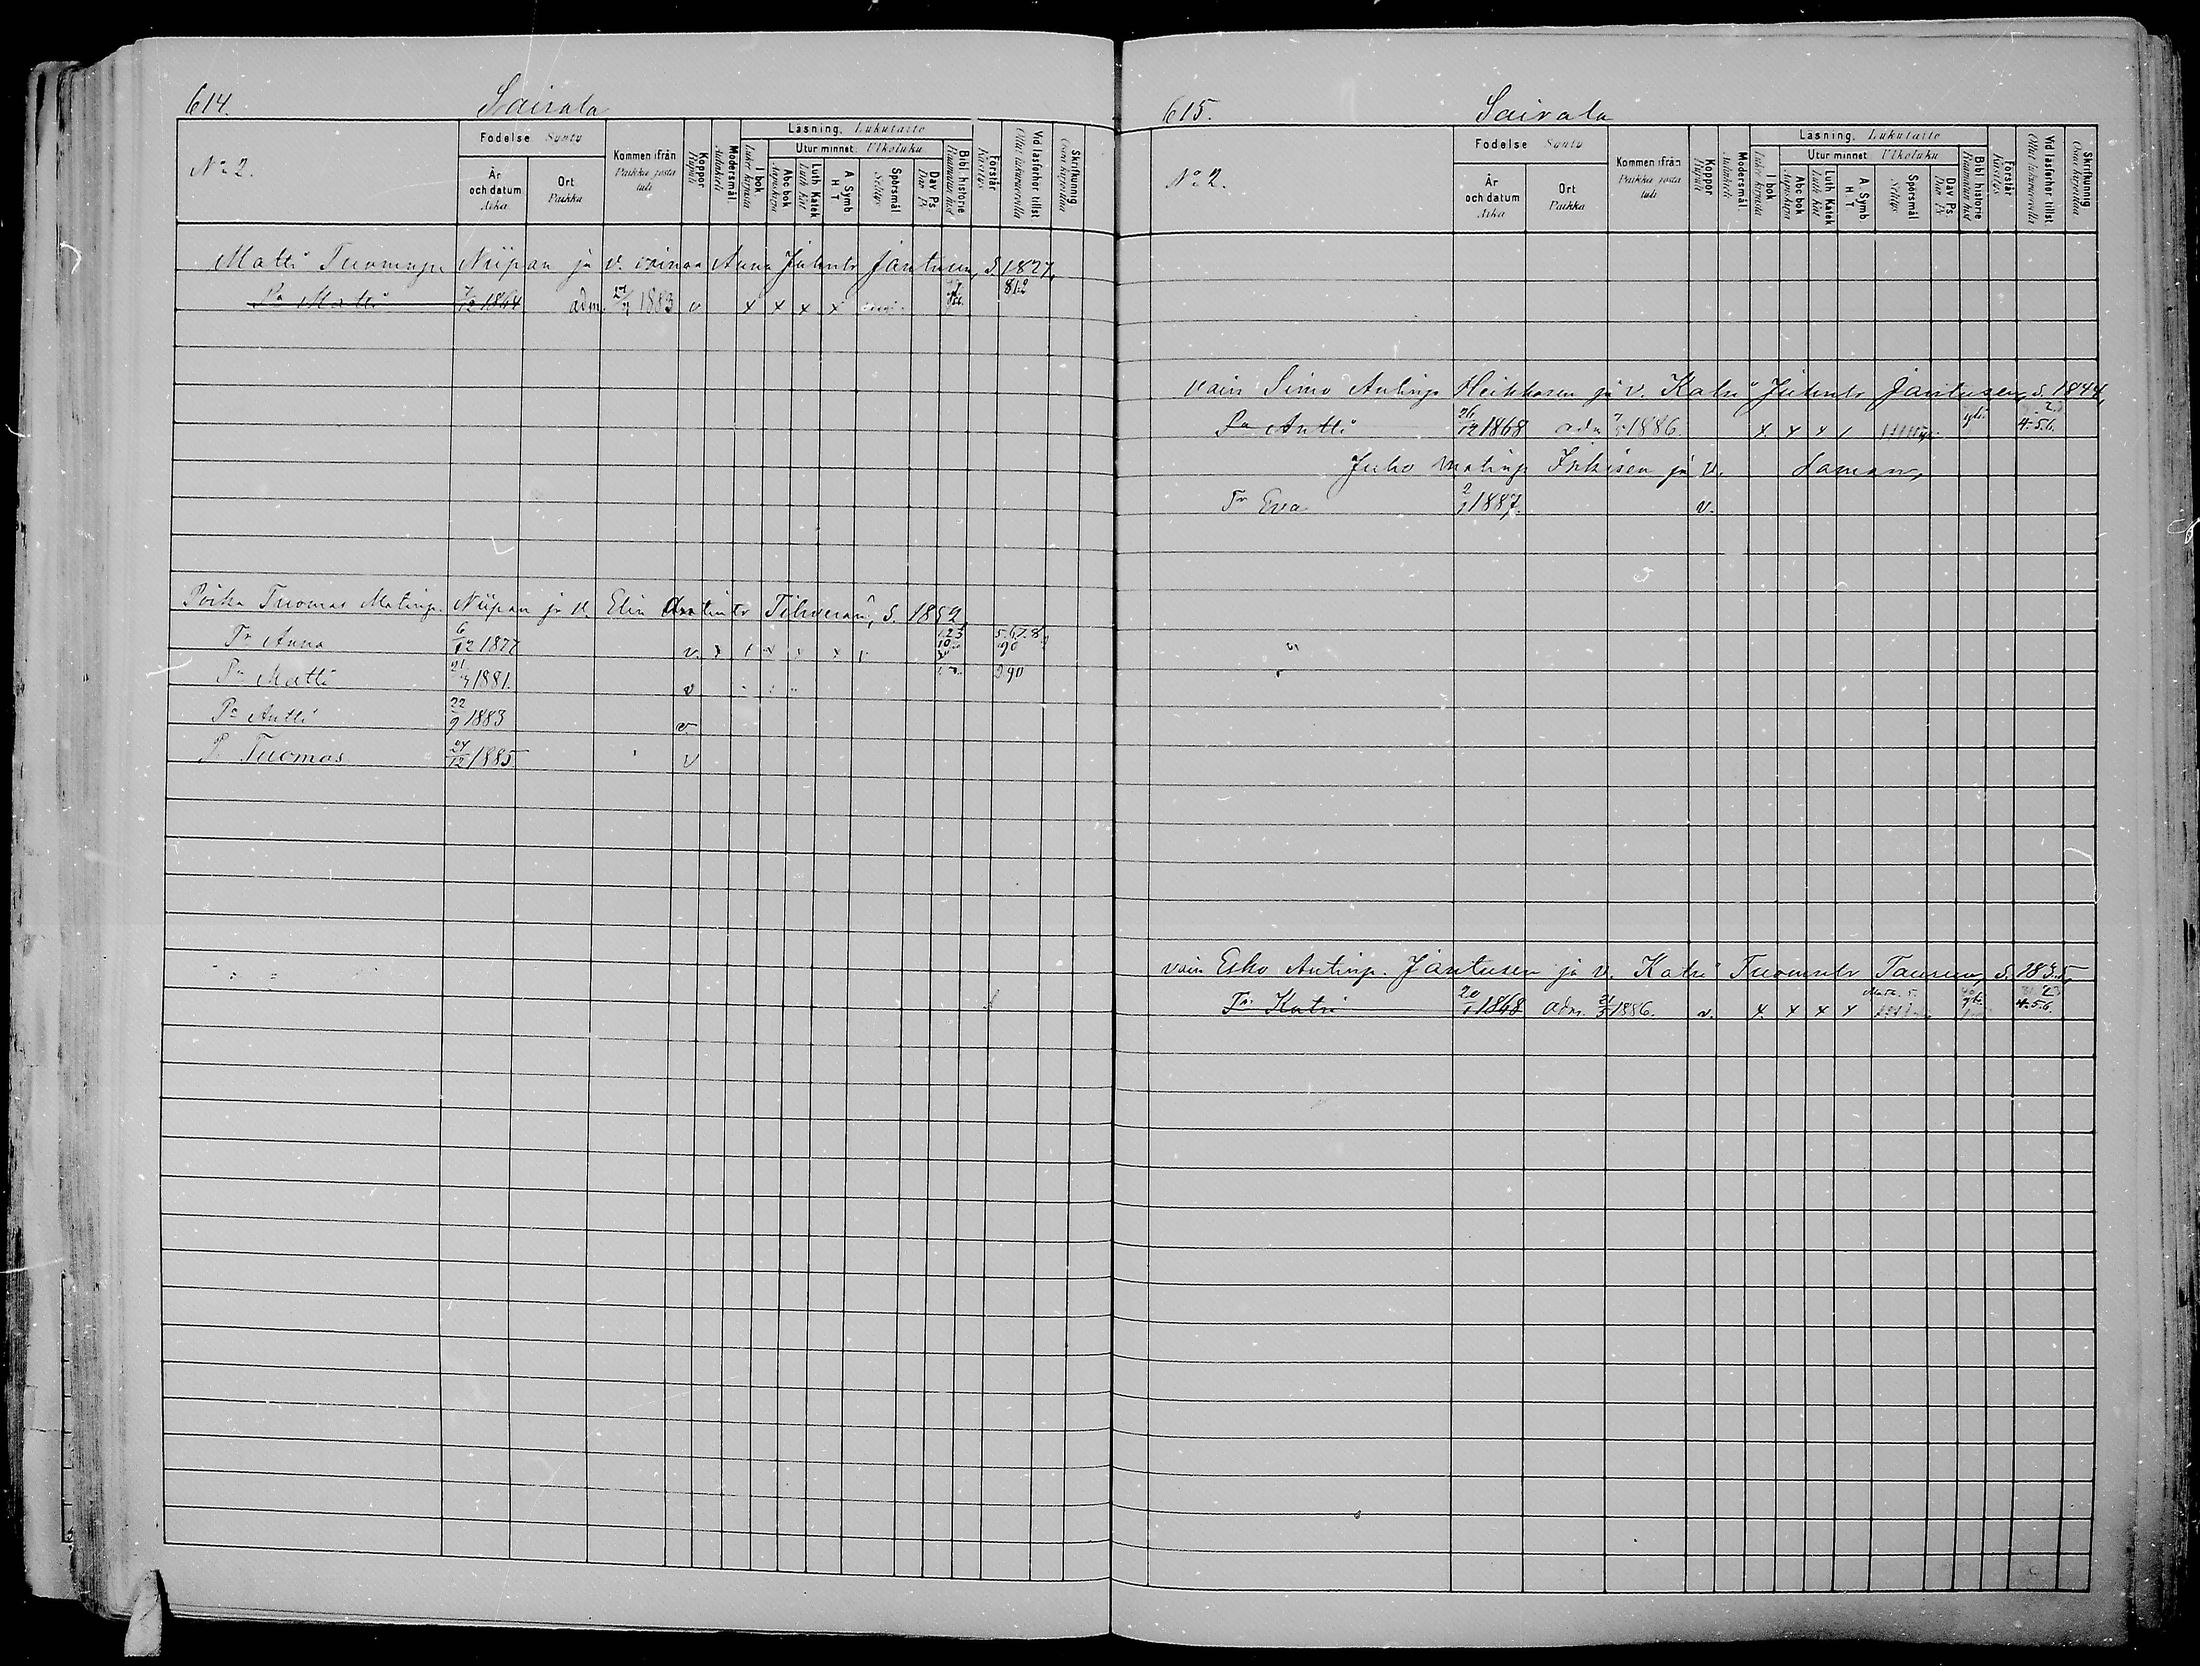 614.
Sairala
No 2.
Födelse Synty
År och datum Aika
Ort Paikka
Kommen ifrån Paikka josta tuli
Koppor Rupuli
Modersmål. Äidinkieli
Läsning. Lukutaito
I bok Luku kirjasta
Utur minnet. Ulkoluku
Abc bok Aapiskirja
Luth Katek Luth Kat
A. Symb H T
Spörsmål Selitys
Dav. Ps. Dav. Ps
Bibl. historie Raamatun hist
Förstår Käsitys
Vid läsförhör tillst. Ollut lukuvuorolla
Skrifkunnig Osaa kirjoittaa
Matti Tuomasp. Niipan ja v. vaimo Anna Juhntr Jantunen, S. 1827,
Pa Matti 7/12 1864 adm. 1883 v x x x x 812
Poika Tuomas Matinp. Niipan ja v. Elin Antintr Tihveräin, S. 1852,
Tr Anna 6/12 1877 v. x x x x 123 5.6.7.8. 90
Pa Matti 21 1881. v 90
Pa Antti 22/9 1883 v
P. Tuomas 24/12 1885 v
615.
Sairala
No 2.
Födelse Synty
År och datum Aika
Ort Paikka
Kommen ifrån Paikka josta tuli
Koppor Rupuli
Modersmål. Äidinkieli
Läsning. Lukutaito
I bok Luku kirjasta
Utur minnet Ulkoluku
Abc bok Aapiskirja
Luth Katek Luth Kat
A. Symb H T
Spörsmål Selitys
Dav. Ps. Dav. Ps
Bibl. historie Raamatun hist
Förstår Käsitys
Vid läsförhör tillst. Ollut lukuvuorolla
Skrifkunnig Osaa kirjoittaa
vain Simo Antinp Heikkosen ja v. Katri Juhntr Jantusen, S. 1844,
Pa Antti 26/12 1868 adm 1886. x x x 4.5.6.
Juho Matinp Inkisen ja v. Saman,
Tr Eva 2 1887. v.
vain Esko Antinp. Jantusen ja v. Katri Tuomntr Tausun, S. 1835,
Tr Katri 20 1868 adm. 21/3 1886. v. x x x x 4.5.6.